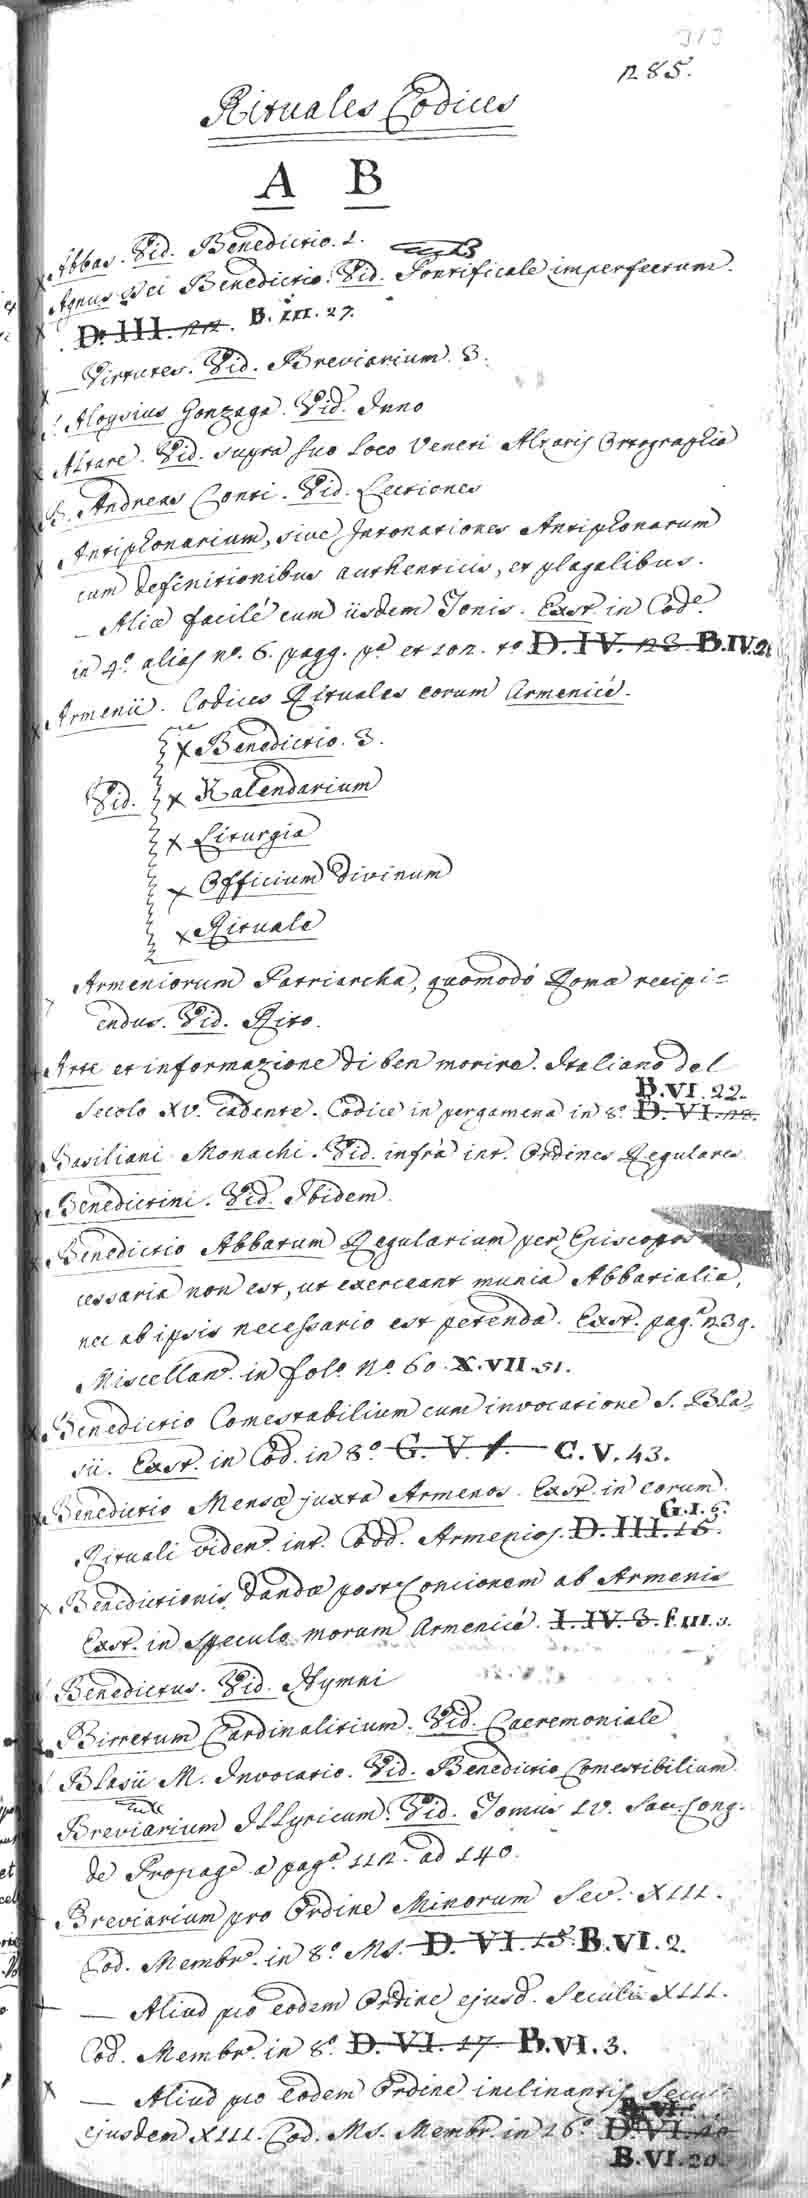 285.
Rituales Codices
A B
Abbas. Vid. Benedictio. 1.
Agnus Dei Benedictio. Vid. Pontificale imperfectum.
D. III. 212. B. III. 27.
— Virtutes. Vid. Breviarium. 3.
S. Aloysius Gonzaga. Vid. Inno
Altare. Vid. supra suo loco Veneti Altaris Ortographia
B. Andreas Conti. Vid. Lectiones
Antiphonarium, sive Intonationes Antiphonarum
cum definitionibus authenticis, et plagalibus.
— Aliæ facilè cum iisdem Tonis. Exst. in Code.
in 4º. alias nº. 6. pagg. pª et 102. tº D. IV. 28. B. IV. 2
Armenii. Codices Rituales eorum Armenicè.
Benedictio. 3.
Vid. Kalendarium
Liturgia
Officium divinum
Rituale
Armeniorum Patriarcha, quomodò Romæ recipi=
endus. Vid. Rito.
Arte et informazione di ben morire. Italiano del
B. VI. 22.
Secolo XV. cadente. Codice in pergamena in 8º. D. VI. 28.
Basiliani Monachi. Vid. infrà int. Ordines Regulares
Benedictini. Vid. Ibidem.
Benedictio Abbatum Regularium per Episcopos
cessaria non est, ut exerceant munia Abbatialia,
nec ab ipsis necessario est petenda. Exst. pag. 239.
Miscellan. in folº. Nº. 60. X. VII. 51.
Benedictio Comestabilium cum invocatione S. Bla=
sii. Exst. in Cod. in 8º. G. V. 1. C. V. 43.
Benedictio Mensæ juxta Armenos. Exst. in eorum
G. I. 5.
Rituali viden. int. Codd. Armenios. D. III. 15.
Benedictionis dandæ post Concionem ab Armenis
Exst. in Speculo morum Armenicè. I. IV. 3. f. III. 3.
Benedictus. Vid. Hymni
Birretum Cardinalitium. Vid. Caeremoniale
Blasii M. Invocatio. Vid. Benedictio Comestibilium
Breviarium Illyricum. Vid. Tomus LV. Sac. Cong.
de Propagª. a pagª. 112. ad 140.
Breviarium pro Ordine Minorum Sec. XIII.
Cod. Membrº. in 8º. MS. D. VI. 15. B. VI. 2.
— Aliud pro eodem Ordine ejusd. Seculi XIII.
Cod. Membrº. in 8º. D. VI. 17. B. VI. 3.
— Aliud pro eodem Ordine inclinantis Seculi
B. VI.
ejusdem XIII. Cod. MS. Membr. in 16º. D. VI. 20
B. VI. 20.